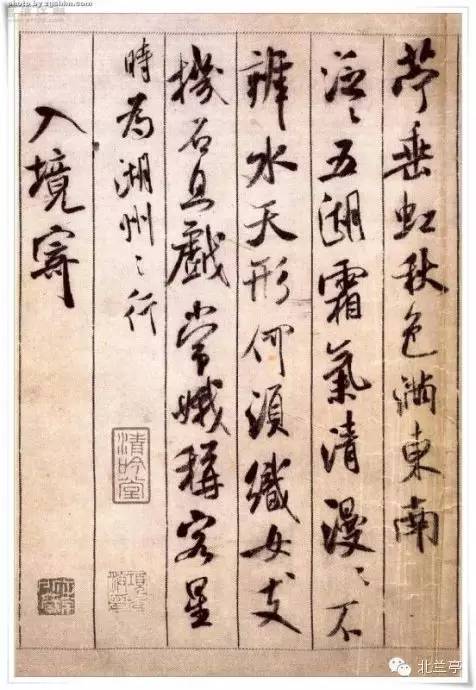 亭垂虹秋色滿東南
泛〻五湖霜氣清漫〻不
辨水天形何須織女支
機石且戲常娥稱客星
時為湖州之行
入境寄
清吟堂
北兰亭